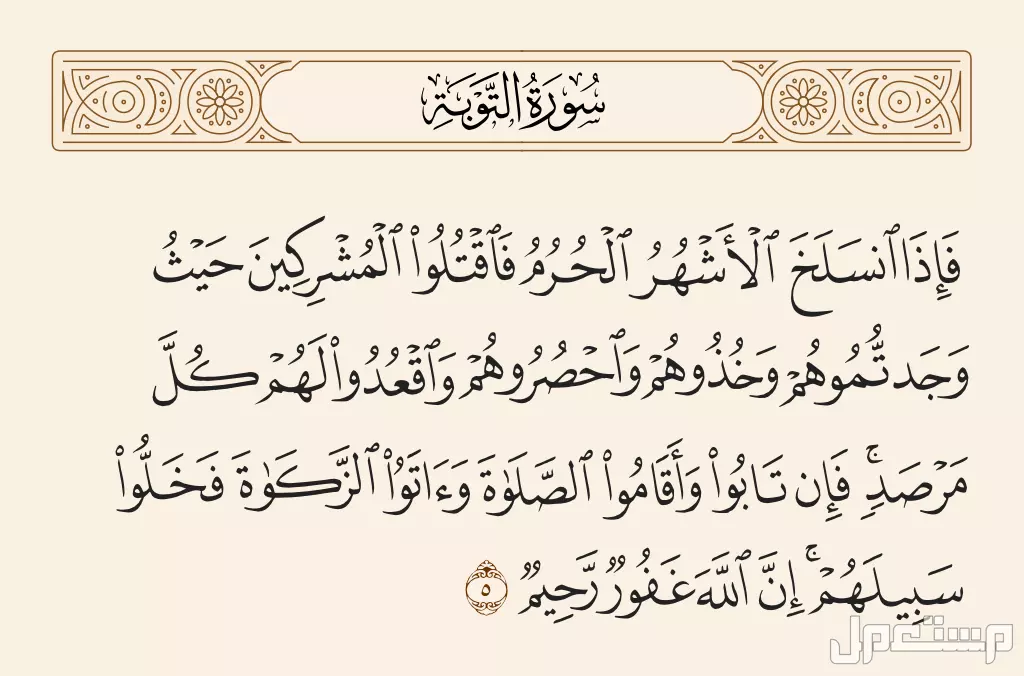 سُورَةُ التَّوۡبَةِ
فَإِذَا ٱنسَلَخَ ٱلۡأَشۡهُرُ ٱلۡحُرُمُ فَٱقۡتُلُواْ ٱلۡمُشۡرِكِينَ حَيۡثُ
وَجَدتُّمُوهُمۡ وَخُذُوهُمۡ وَٱحۡصُرُوهُمۡ وَٱقۡعُدُواْ لَهُمۡ كُلَّ
مَرۡصَدٖۚ فَإِن تَابُواْ وَأَقَامُواْ ٱلصَّلَوٰةَ وَءَاتَوُاْ ٱلزَّكَوٰةَ فَخَلُّواْ
سَبِيلَهُمۡۚ إِنَّ ٱللَّهَ غَفُورٞ رَّحِيمٞ ٥
مستعمل